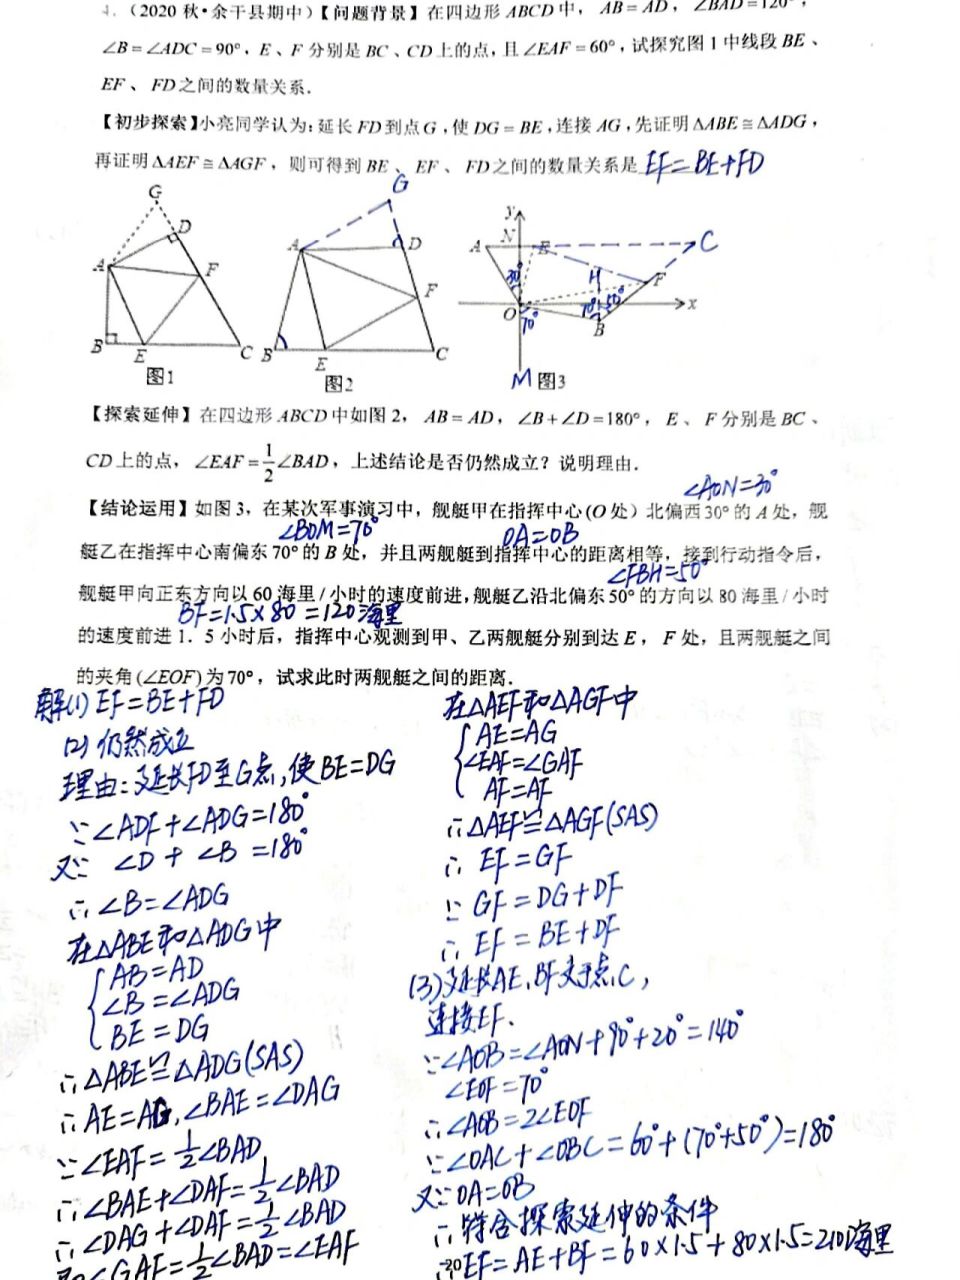 4.（2020 秋•余干县期中）【问题背景】在四边形 ABCD 中， AB = AD， ∠BAD = 120°，
∠B = ∠ADC = 90°，E、F 分别是 BC、CD 上的点，且 ∠EAF = 60°，试探究图 1 中线段 BE、
EF、 FD 之间的数量关系．
【初步探索】小亮同学认为：延长 FD 到点 G，使 DG = BE，连接 AG，先证明 ΔABE ≅ ΔADG，
再证明 ΔAEF ≅ ΔAGF，则可得到 BE、 EF、 FD 之间的数量关系是 EF=BE+FD
G
D
A
F
B
E
C
图1
G
A
D
F
B
E
C
图2
y
A
N
E
C
30°
H
F
O
70°
70°
50°
x
B
M
图3
【探索延伸】在四边形 ABCD 中如图 2， AB = AD， ∠B + ∠D = 180°， E、 F 分别是 BC、
CD 上的点， ∠EAF = 1/2 ∠BAD，上述结论是否仍然成立？说明理由．
∠AON=30°
【结论运用】如图 3，在某次军事演习中，舰艇甲在指挥中心 (O 处) 北偏西 30° 的 A 处，舰
∠BOM=70°
OA=OB
艇乙在指挥中心南偏东 70° 的 B 处，并且两舰艇到指挥中心的距离相等，接到行动指令后，
∠FBH=50°
舰艇甲向正东方向以 60 海里 / 小时的速度前进，舰艇乙沿北偏东 50° 的方向以 80 海里 / 小时
BF=1.5×80=120海里
的速度前进 1．5 小时后，指挥中心观测到甲、乙两舰艇分别到达 E， F 处，且两舰艇之间
的夹角 (∠EOF) 为 70°，试求此时两舰艇之间的距离．
解(1) EF=BE+FD
(2) 仍然成立
理由:延长FD至G点,使BE=DG
∵∠ADF+∠ADG=180°
又∵ ∠D+∠B=180°
∴∠B=∠ADG
在△ABE和△ADG中
AB=AD
∠B=∠ADG
BE=DG
∴△ABE≌△ADG(SAS)
∴AE=AG,∠BAE=∠DAG
∵∠EAF=1/2∠BAD
∴∠BAE+∠DAF=1/2∠BAD
∴∠DAG+∠DAF=1/2∠BAD
即∠GAF=1/2∠BAD=∠EAF
在△AEF和△AGF中
AE=AG
∠EAF=∠GAF
AF=AF
∴△AEF≌△AGF(SAS)
∴ EF=GF
∵ GF=DG+DF
∴ EF=BE+DF
(3)延长AE、BF交于点C,
连接EF.
∵∠AOB=∠AON+90°+20°=140°
∠EOF=70°
∴∠AOB=2∠EOF
∵∠OAC+∠OBC=60°+(70°+50°)=180°
又∵OA=OB
∴符合探索延伸的条件
∴EF=AE+BF=60×1.5+80×1.5=210海里